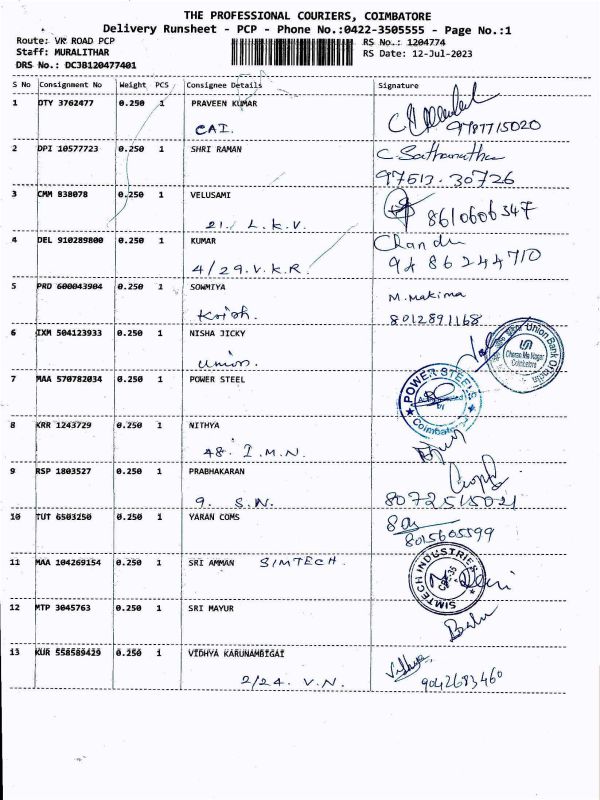 THE PROFESSIONAL COURIERS, COIMBATORE
Delivery Runsheet - PCP - Phone No.:0422-3505555 - Page No.:1
Route: VK ROAD PCP
Staff: MURALITHAR
DRS No.: DCJB120477401
RS No.: 1204774
RS Date: 12-Jul-2023
S No Consignment No Weight PCS Consignee Details Signature
1 DTY 3762477 0.250 1 PRAVEEN KUMAR
CAI.
9787715020
2 DPI 10577723 0.250 1 SHRI RAMAN
C Sathanatha
97513.30726
3 CMM 838078 0.250 1 VELUSAMI
21/ L.K.V.
8610606347
4 DEL 910289800 0.250 1 KUMAR
Chandu
4/29.V.K.R.
9486244710
5 PRD 600043904 0.250 1 SOWMIYA
M. Makima
Krish.
8012891168
6 IXM 504123933 0.250 1 NISHA JICKY
Union.
Union Bank Of India
Cheran Ma Nagar
Coimbatore
7 MAA 570782034 0.250 1 POWER STEEL
POWER STEELS
Coimbatore
8 KRR 1243729 0.250 1 NITHYA
48. I.M.N.
9 RSP 1803527 0.250 1 PRABHAKARAN
9. S.N.
8072515021
10 TUT 6503250 0.250 1 YARAN COMS
8015605599
11 MAA 104269154 0.250 1 SRI AMMAN SIMTECH.
SIMTECH INDUSTRIES
CBE-35
12 MTP 3045763 0.250 1 SRI MAYUR
Balu
13 KUR 558589429 0.250 1 VIDHYA KARUNAMBIGAI
Vidhya
2/24. V.N.
9042683460